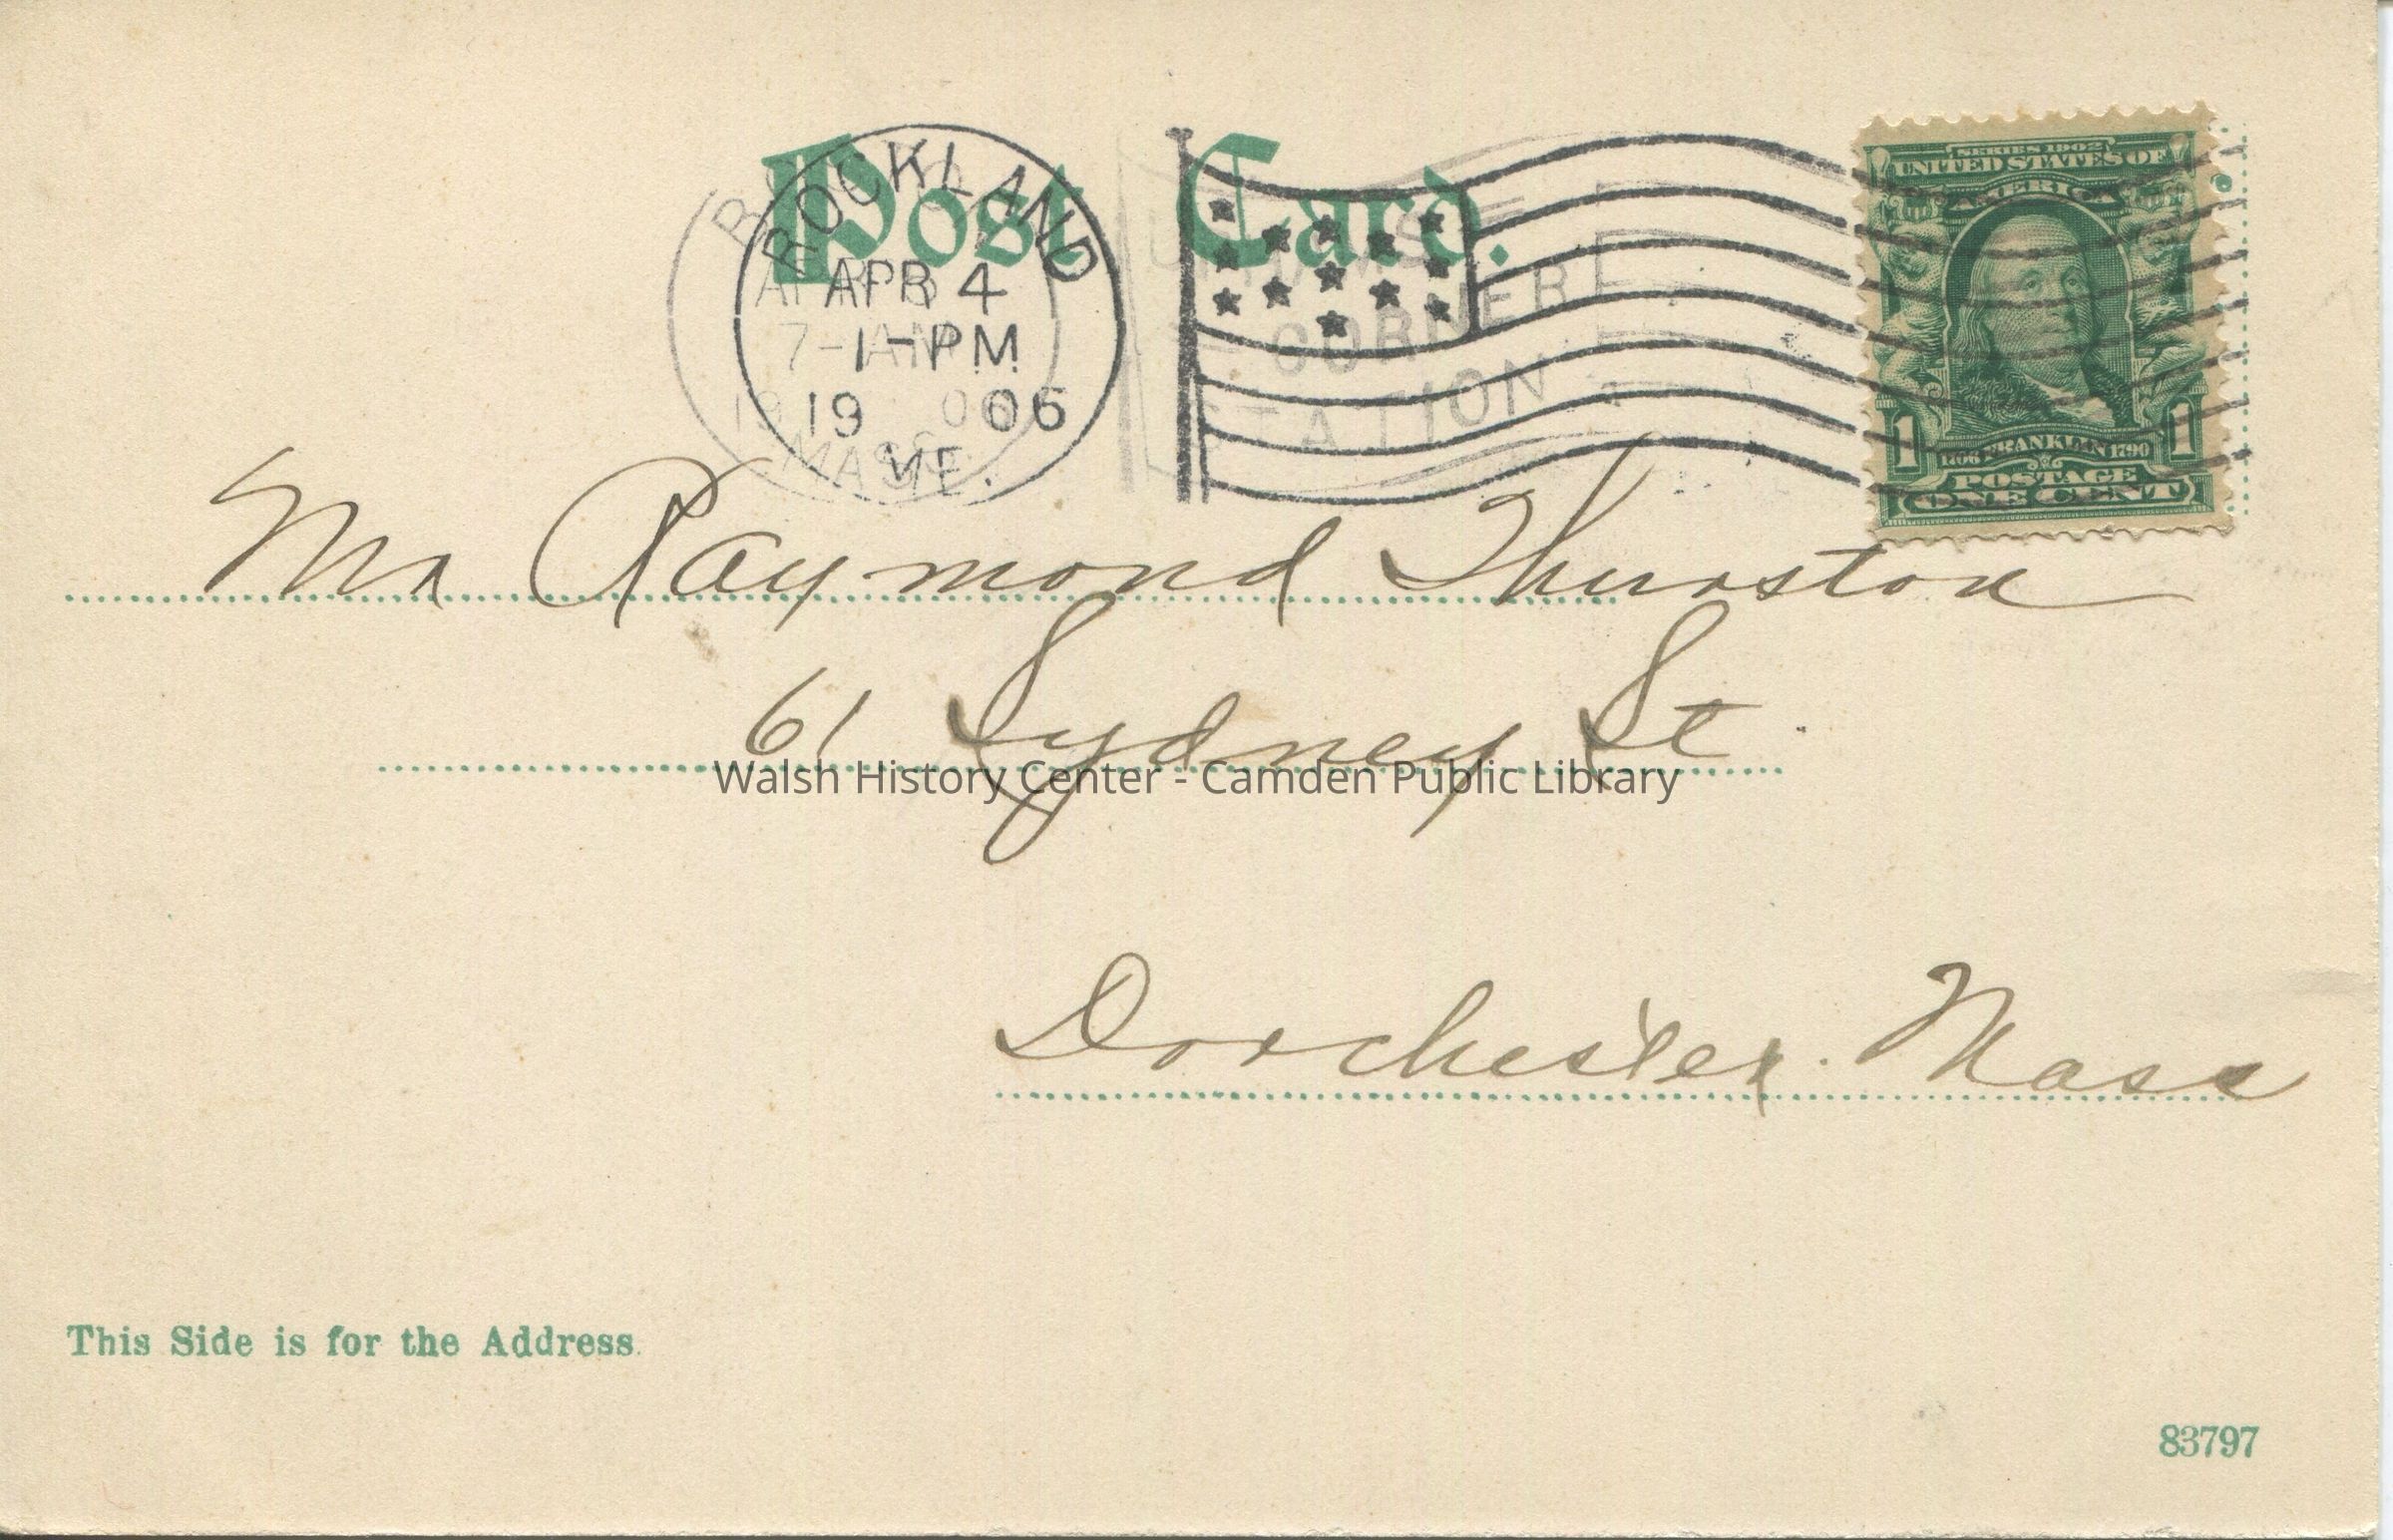 Post Card.
ROCKLAND
APR 4
1-PM
1906
ME.
APR
7-AM
19 06
MASS.
CORNER
STATION.
SERIES 1902
UNITED STATES OF
AMERICA
1 1
1706 FRANKLIN 1790
POSTAGE
ONE CENT
Mr Raymond Thurston
61 Sydney St.
Walsh History Center - Camden Public Library
Dorchester. Mass
This Side is for the Address.
83797